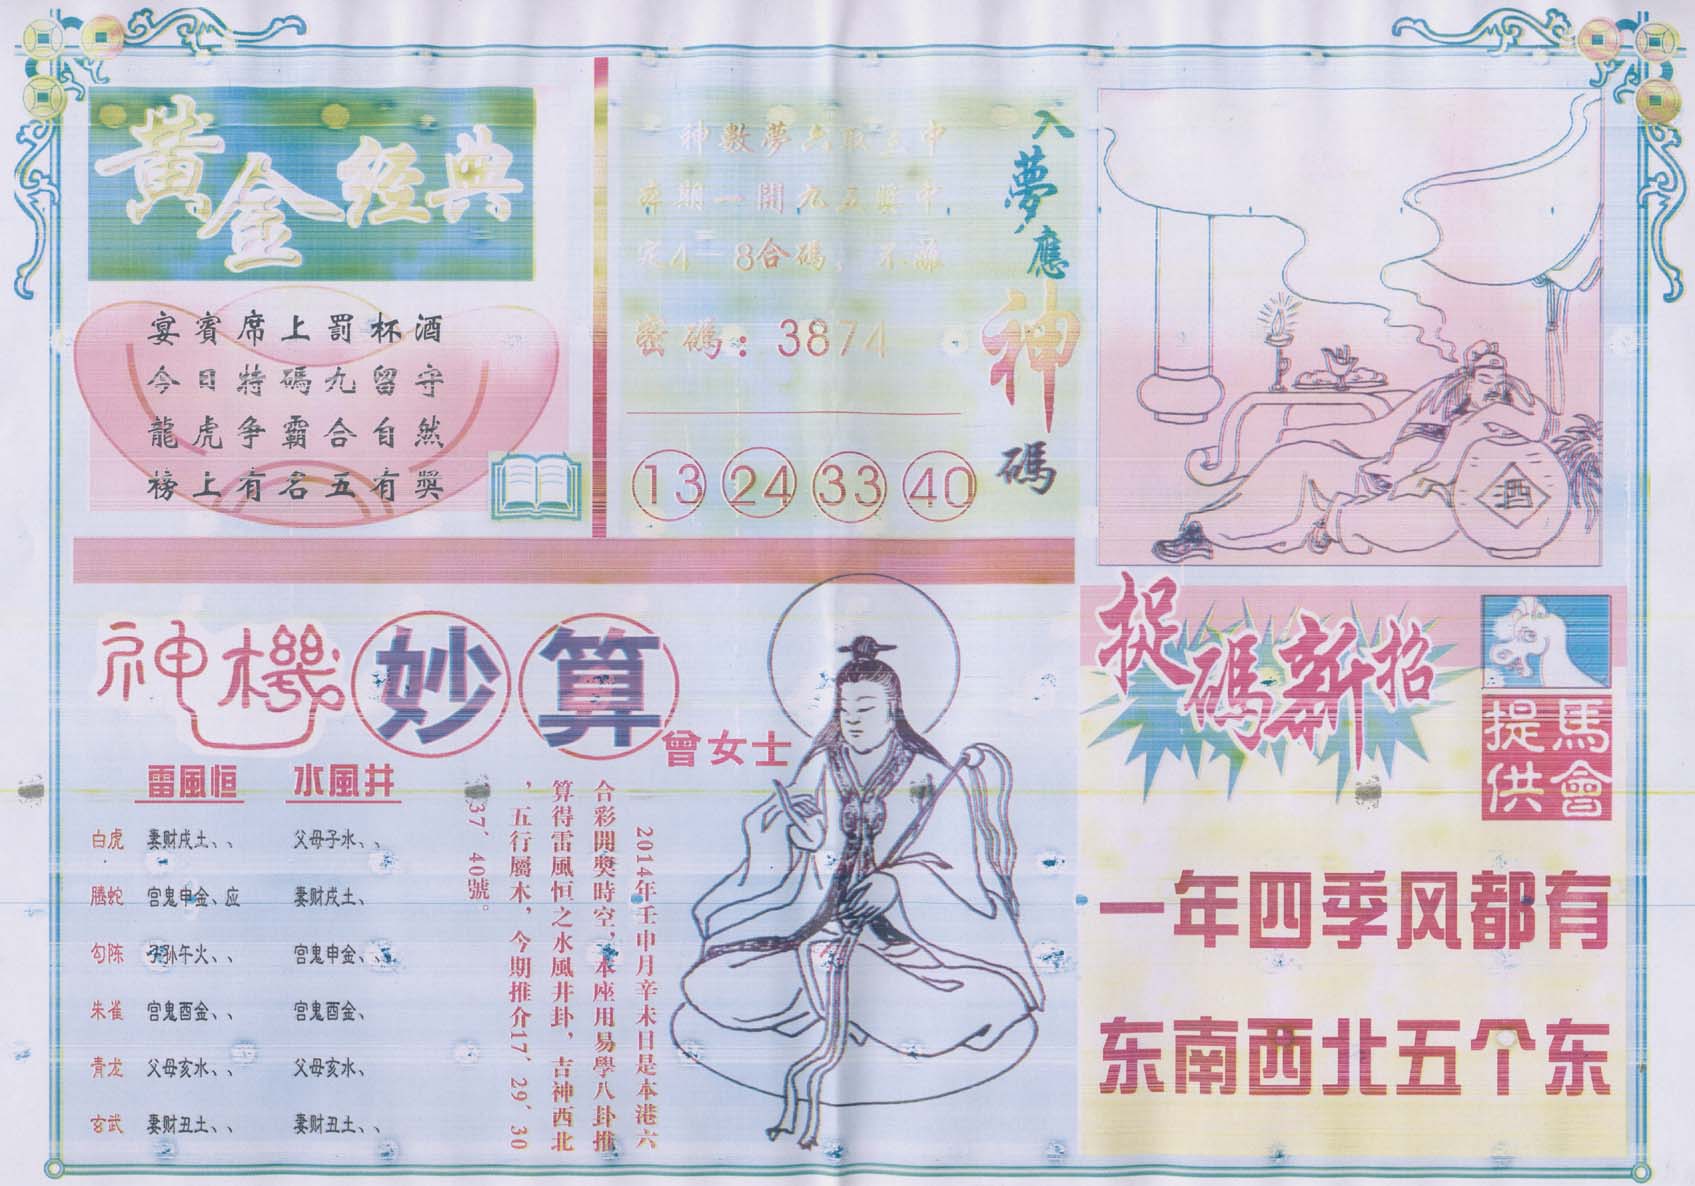 黃金經典
宴賓席上罰杯酒
今日特碼九留守
龍虎爭霸合自然
榜上有名五有獎
入夢應神碼
神數夢六取三中
本期一開九五獎中
定4－8合碼，不
密碼：3874
13 24 33 40
酒
神機妙算
曾女士
雷風恒 水風井
白虎 妻财戌土、、 父母子水、、
腾蛇 官鬼申金、应 妻财戌土、
勾陈 子孙午火、、 官鬼申金、、
朱雀 官鬼酉金、、 官鬼酉金、
青龙 父母亥水、、 父母亥水、
玄武 妻财丑土、、 妻财丑土、、
2014年壬申月辛未日是本港六
合彩開獎時空，本座用易學八卦推
算得雷風恒之水風井卦，吉神西北
，五行屬木，今期推介17、29、30
37、40號。
捉碼新招
馬會提供
一年四季风都有
东南西北五个东